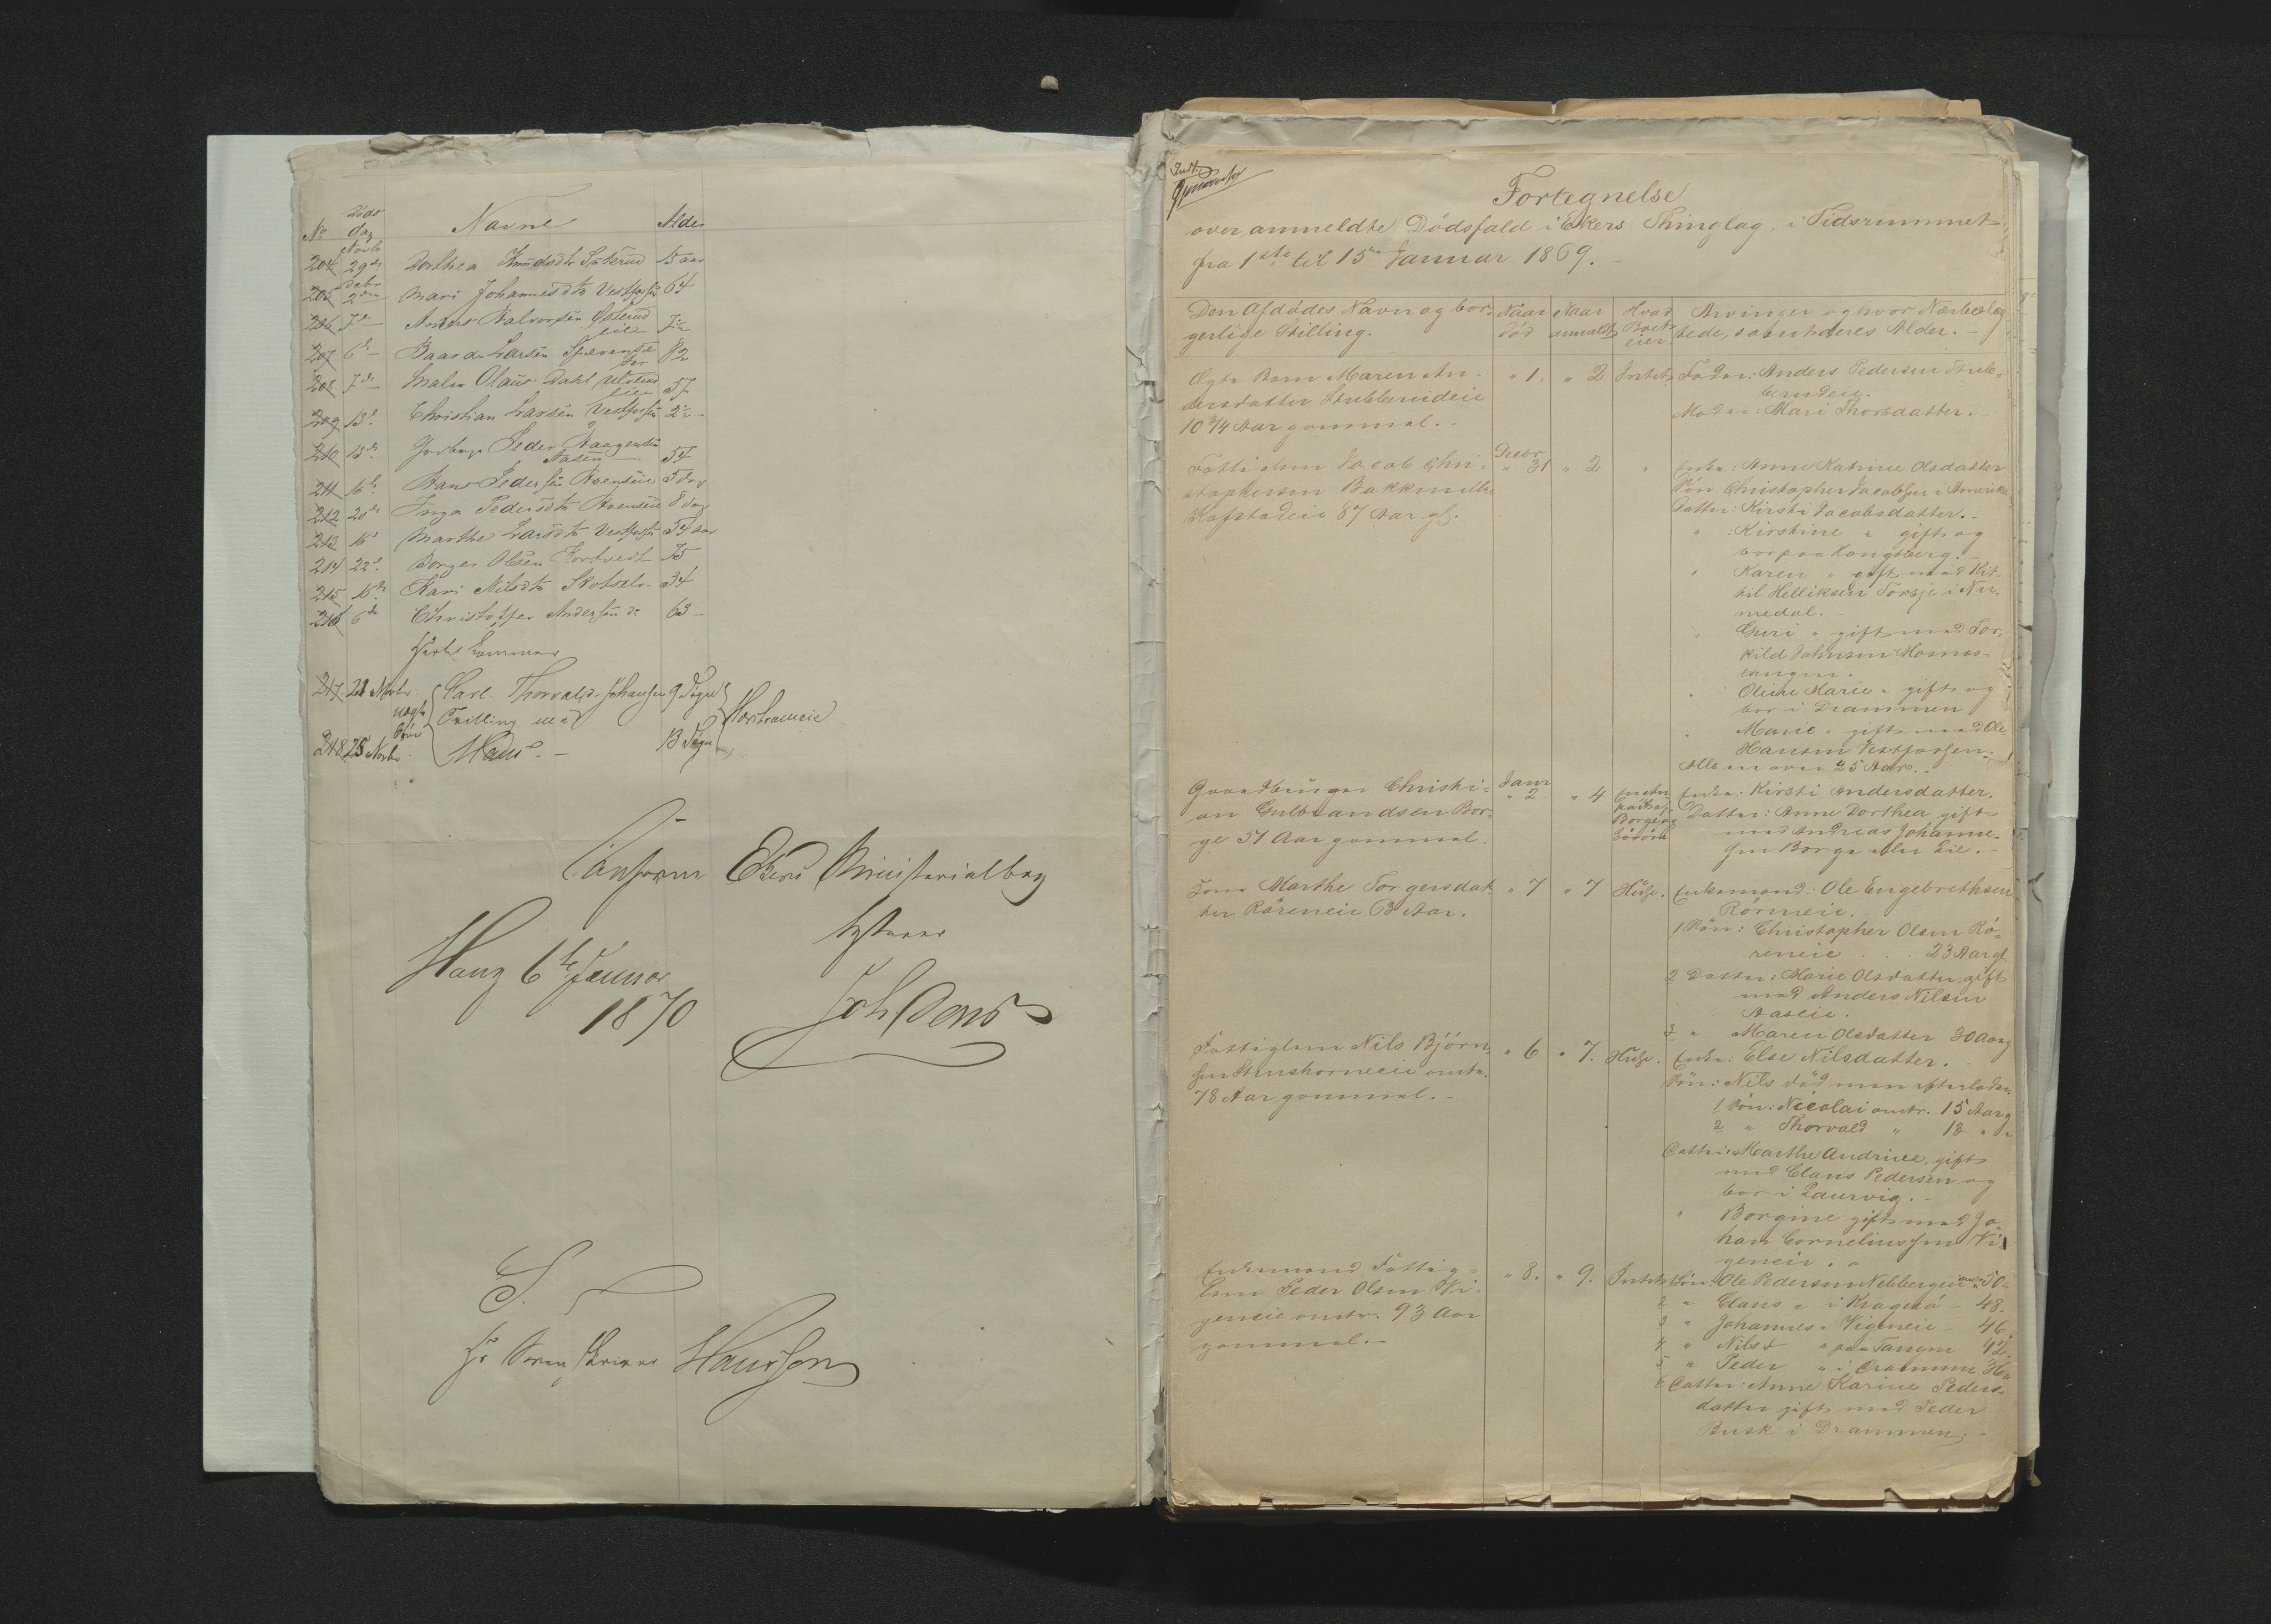 No Døds dag Navne Alder
204 Novbr 29de Dorthea Knudsdtr Sæterud 15 aar
205 Debr 2den Mari Johannesdtr Vestfossen 64
206 7de — Anders Halvorsen
eiet
207 6te — Larsen 82
208 7de — Maler Olaus Dahl
eiet 57
209 13de Christian Larsen Vestfossen
210 13de Peder Haagensen
Aasen 54
211 16de Hans Pedersen 5 dag
212 20de Inga Pedersdtr 8 dag
213 16de Marthe Larsdtr Vestfossen 54 aar
214 22de Borger Olsen 75
215 16de Kari Nilsdtr Skotselv 34
216 6te Christoffer Andersen do 63 —
217. 21 Novbr. Carl Thorvald Johansen 9 Dage
Tvilling med
218 25 Novbr. Hans. — 13 Dage
Conform Ekers Ministerialbog
testerer
Haug 6te Januar
1870
S. T.
Hr Sorenskriver Hansson
Fortegnelse
over anmeldte Dødsfald i Ekers Thinglag, i Tidsrummet
fra 1ste til 15de Januar 1869. —
Den Afdødes Navn og bor-
gerlige Stilling.
Naar
død
Naar
anmeldt
Hvad
Boet
eier
Arvinger og hvor Nærbeslæg-
tede, samt deres Alder. —
Ægte Barn Maren An-
dersdatter Stubberudeie
10 3/4 Aar gammel. —
" 1. " 2 Intet
Fader: Anders Pedersen Stub-
berudeie.
Moder: Mari Thorsdatter. —
Fattiglem Jacob Chri-
stophersen Bakkemellem
Hofstadeie 87 Aar gl.
Decbr
" 31 " 2 "
Enke: Anne Katrine Olsdatter
Søn: Christopher Jacobsen i Amerika
Datter: Kirsti Jacobsdatter. —
" : Kirstine " gift og
bor paa Kongsberg. —
" Karen " gift med Kit-
til Helliksen Torsje i Nu-
medal. —
" Guri " gift med Tor-
kild Johnsen
" Oline Marie " gift og
bor i Drammen
" Marie " gift med Ole
Hansen Vestfossen. —
Alle er over 25 Aar. —
Gaardbruger Christi-
an Gulbrandsen Bor-
ge 51 Aar gammel.
Janr
" 2 " 4
Enke: Kirsti Andersdatter.
Datter: Anne Dorthea gift
med Andreas Johanne-
sen Borge eller Lie. —
Kone Marthe Torgersdat-
ter Röreneie 63 Aar.
" 7 " 7 Huse.
Enkemand: Ole Engebrethsen
Röreneie.
1 Søn: Christopher Olsen Rö-
reneie . . . 23 Aar gl
2 Datter: Marie Olsdatter gift
med Anders Nilsen
Aaseie.
3 " Maren Olsdatter 30 Aar g
Fattiglem Nils Björn-
sen Stenshorneeie omtr.
78 Aar gammel. —
" 6 " 7. Huse.
Enke: Else Nilsdatter.
Søn: Nils død men efterlader
1 Søn: Nicolai omtr. 15 Aar g
2 " Thorvald " 13 " "
Datter: Marthe Andrine, gift
med Claus Pedersen og
bor i Laurvig. —
" Borgine gift med Jo-
han Corneliussen Vi-
geneie. "
Enkemand Fattig-
lem Peder Olsen Vi-
geneie omtr. 93 Aar
gammel. —
" 8. " 9. Intet
Søn: Ole Pedersen omtr. 50
2 " Claus " i Kragerö — 48.
3 " Johannes " Vigeneie — 46
4 " Nils " paa Tangen 42
5 " Peder " i Drammen
6 Datter: Anne Karine Peders-
datter gift med Peder
Busk i Drammen. —